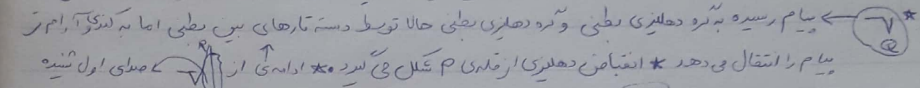 * ← پیام رسیده به گره دهلیزی بطنی و گره دهلیزی بطنی حالا توسط دسته تارهای بین بطنی اما به کندی و آرام تر
پیام را انتقال می دهد * انقباض دهلیزی از قله ی P شکل می گیرد * ادامه ی از ← صدای اول شنیده